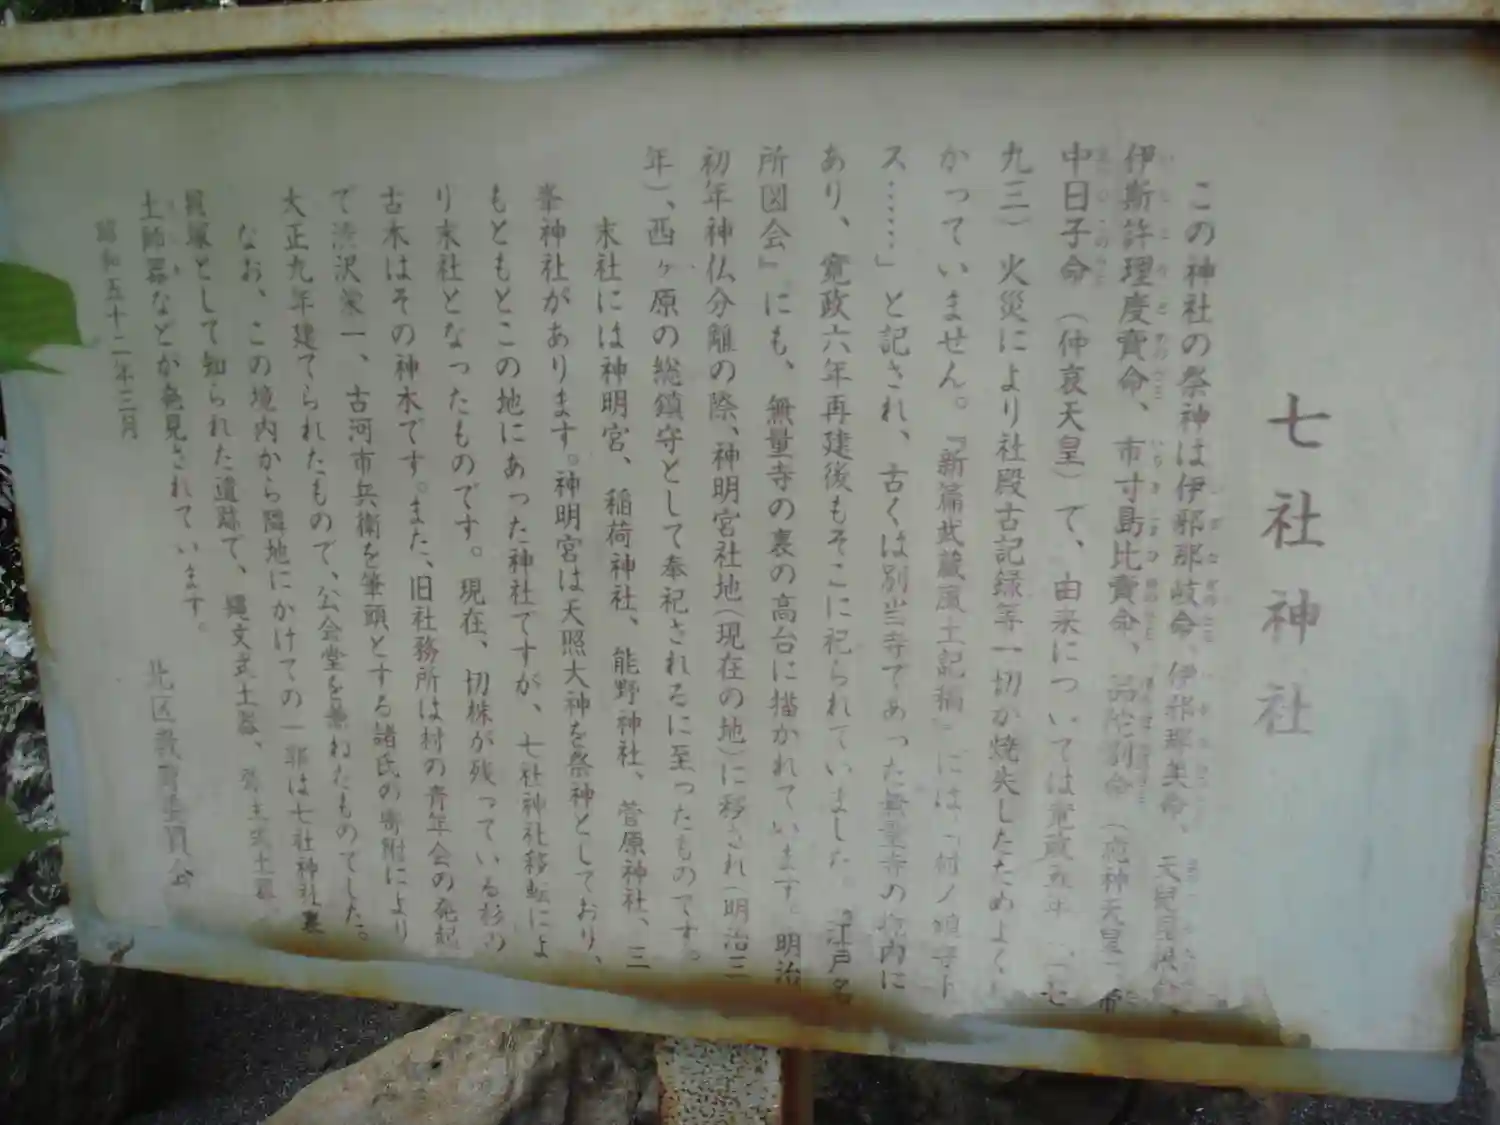 七社神社
この神社の祭神は伊邪那岐命、伊邪那美命、天児屋根命、
伊斯許理度賣命、市寸島比賣命、品陀別命（応神天皇）、帯
中日子命（仲哀天皇）で、由来については寛政五年（一七
九三）火災により社殿古記録等一切が焼失したためよくわ
かっていません。『新篇武蔵風土記稿』には、「村ノ鎮守ト
ス……」と記され、古くは別当寺であった無量寺の境内に
あり、寛政六年再建後もそこに祀られていました。『江戸名
所図会』にも、無量寺の裏の高台に描かれています。明治
初年神仏分離の際、神明宮社地（現在の地）に移され（明治三
年）、西ヶ原の総鎮守として奉祀されるに至ったものです。
末社には神明宮、稲荷神社、熊野神社、菅原神社、三
峯神社があります。神明宮は天照大神を祭神としており、
もともとこの地にあった神社ですが、七社神社移転によ
り末社となったものです。現在、切株が残っている杉の
古木はその神木です。また、旧社務所は村の青年会の発起
で渋沢栄一、古河市兵衛を筆頭とする諸氏の寄附により
大正九年建てられたもので、公会堂を兼ねたものでした。
なお、この境内から隣地にかけての一部は七社神社裏
貝塚として知られた遺跡で、縄文式土器、弥生式土器、
土師器などが発見されています。
昭和五十二年三月
北区教育委員会